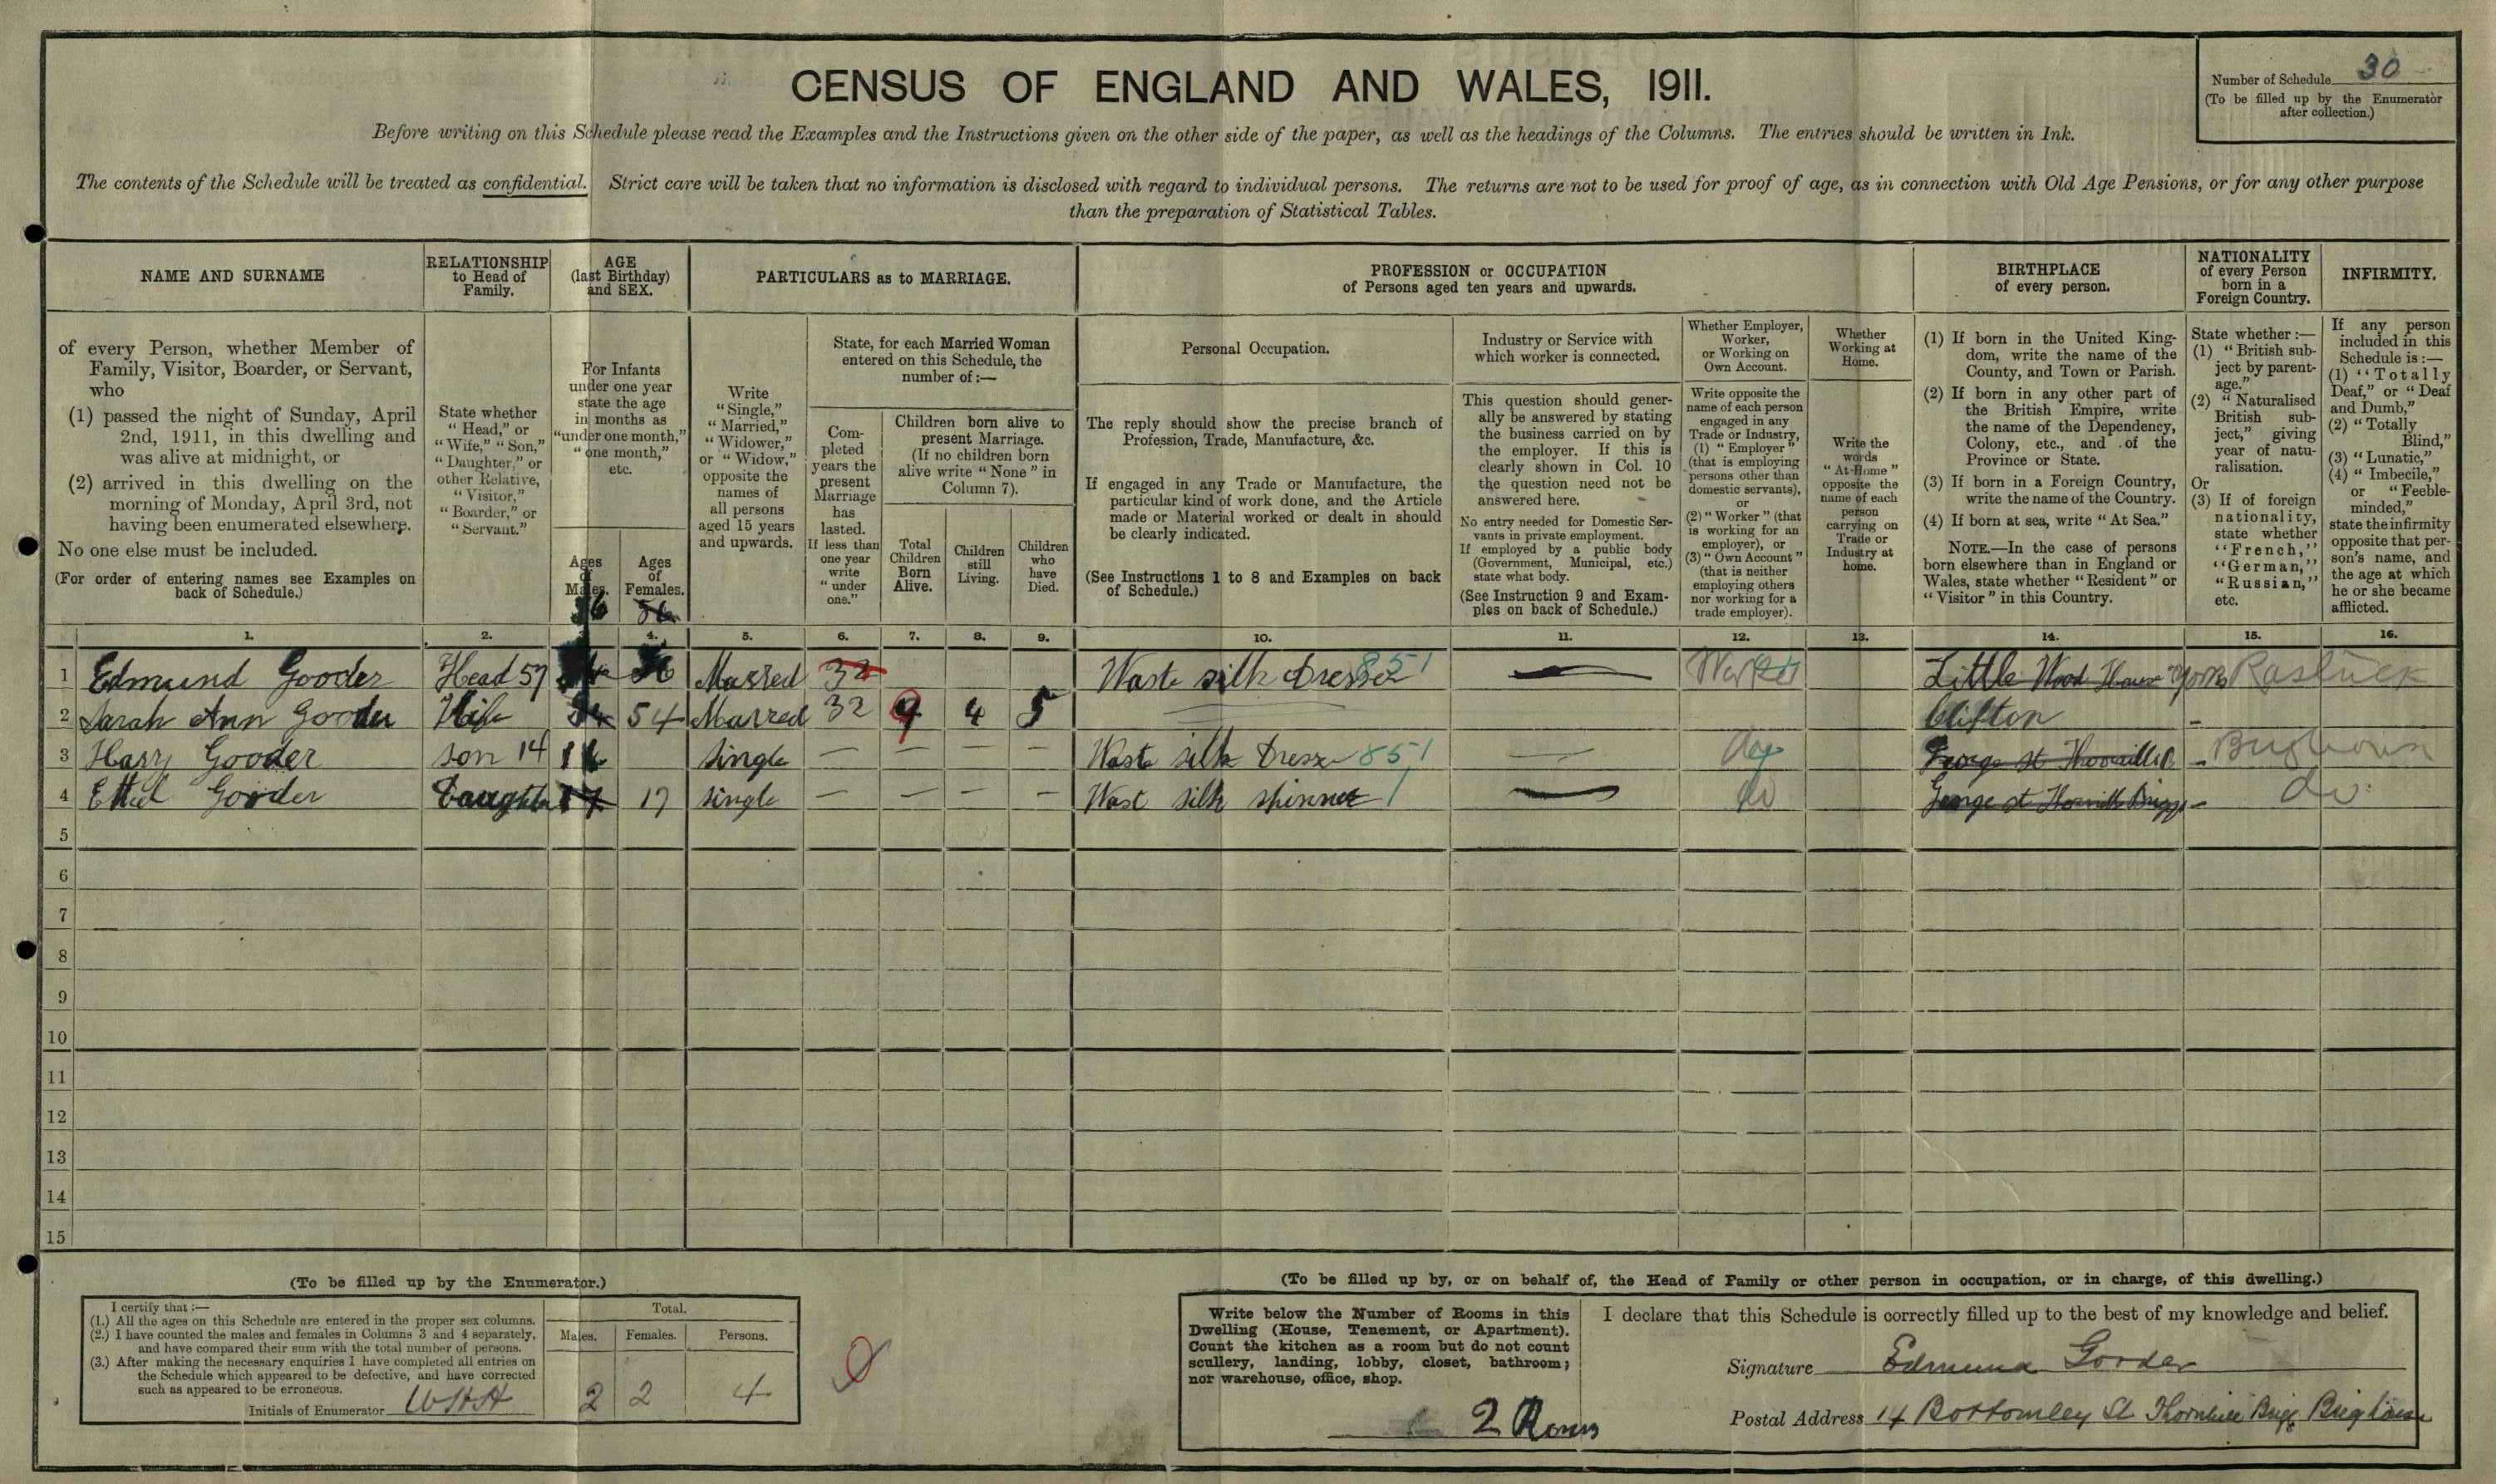 CENSUS OF ENGLAND AND WALES, 1911.
Number of Schedule 30
(To be filled up by the Enumerator after collection.)
Before writing on this Schedule please read the Examples and the Instructions given on the other side of the paper, as well as the headings of the Columns. The entries should be written in Ink.
The contents of the Schedule will be treated as confidential. Strict care will be taken that no information is disclosed with regard to individual persons. The returns are not to be used for proof of age, as in connection with Old Age Pensions, or for any other purpose
than the preparation of Statistical Tables.
NAME AND SURNAME
of every Person, whether Member of
Family, Visitor, Boarder, or Servant,
who
(1) passed the night of Sunday, April
2nd, 1911, in this dwelling and
was alive at midnight, or
(2) arrived in this dwelling on the
morning of Monday, April 3rd, not
having been enumerated elsewhere.
No one else must be included.
(For order of entering names see Examples on
back of Schedule.)
RELATIONSHIP
to Head of
Family.
State whether
"Head," or
"Wife," "Son,"
"Daughter," or
other Relative,
"Visitor,"
"Boarder," or
"Servant."
AGE
(last Birthday)
and SEX.
For Infants
under one year
state the age
in months as
"under one month,"
"one month,"
etc.
Ages
of
Males.
Ages
of
Females.
56
PARTICULARS as to MARRIAGE.
Write
"Single,"
"Married,"
"Widower,"
or "Widow,"
opposite the
names of
all persons
aged 15 years
and upwards.
State, for each Married Woman
entered on this Schedule, the
number of:—
Com-
pleted
years the
present
Marriage
has
lasted.
If less than
one year
write
"under
one."
Children born alive to
present Marriage.
(If no children born
alive write "None" in
Column 7).
Total
Children
Born
Alive.
Children
still
Living.
Children
who
have
Died.
PROFESSION or OCCUPATION
of Persons aged ten years and upwards.
Personal Occupation.
The reply should show the precise branch of
Profession, Trade, Manufacture, &c.
If engaged in any Trade or Manufacture, the
particular kind of work done, and the Article
made or Material worked or dealt in should
be clearly indicated.
(See Instructions 1 to 8 and Examples on back
of Schedule.)
Industry or Service with
which worker is connected.
This question should gener-
ally be answered by stating
the business carried on by
the employer. If this is
clearly shown in Col. 10
the question need not be
answered here.
No entry needed for Domestic Ser-
vants in private employment.
If employed by a public body
(Government, Municipal, etc.)
state what body.
(See Instruction 9 and Exam-
ples on back of Schedule.)
Whether Employer,
Worker,
or Working on
Own Account.
Write opposite the
name of each person
engaged in any
Trade or Industry,
(1) "Employer"
(that is employing
persons other than
domestic servants),
or
(2) "Worker" (that
is working for an
employer), or
(3) "Own Account"
(that is neither
employing others
nor working for a
trade employer).
Whether
Working at
Home.
Write the
words
"At Home"
opposite the
name of each
person
carrying on
Trade or
Industry at
home.
BIRTHPLACE
of every person.
(1) If born in the United King-
dom, write the name of the
County, and Town or Parish.
(2) If born in any other part of
the British Empire, write
the name of the Dependency,
Colony, etc., and of the
Province or State.
(3) If born in a Foreign Country,
write the name of the Country.
(4) If born at sea, write "At Sea."
NOTE.—In the case of persons
born elsewhere than in England or
Wales, state whether "Resident" or
"Visitor" in this Country.
NATIONALITY
of every Person
born in a
Foreign Country.
State whether:—
(1) "British sub-
ject by parent-
age."
(2) "Naturalised
British sub-
ject," giving
year of natu-
ralisation.
Or
(3) If of foreign
nationality,
state whether
"French,"
"German,"
"Russian,"
etc.
INFIRMITY.
If any person
included in this
Schedule is:—
(1) "Totally
Deaf," or "Deaf
and Dumb,"
(2) "Totally
Blind,"
(3) "Lunatic,"
(4) "Imbecile,"
or "Feeble-
minded,"
state the infirmity
opposite that per-
son's name, and
the age at which
he or she became
afflicted.
1. 2. 4. 5. 6. 7. 8. 9. 10. 11. 12. 13. 14. 15. 16.
1 Edmund Gooder Head 57 Marred 32 Waste silk Dresser 851 Worker Little Wood House York Rastrick
2 Sarah Ann Gooder Wife 54 Marred 32 9 4 5 Clifton -
3 Harry Gooder son 14 single — — — — Waste silk Dresser 851 — do George st - Brighouse
4 Ethel Gooder Daughter 17 17 single — — — — Wast silk spinner 1 do George st - do
5
6
7
8
9
10
11
12
13
14
15
(To be filled up by the Enumerator.)
I certify that:—
(1.) All the ages on this Schedule are entered in the proper sex columns.
(2.) I have counted the males and females in Columns 3 and 4 separately,
and have compared their sum with the total number of persons.
(3.) After making the necessary enquiries I have completed all entries on
the Schedule which appeared to be defective, and have corrected
such as appeared to be erroneous.
Initials of Enumerator
Total.
Males. Females. Persons.
2 2 4
(To be filled up by, or on behalf of, the Head of Family or other person in occupation, or in charge, of this dwelling.)
Write below the Number of Rooms in this
Dwelling (House, Tenement, or Apartment).
Count the kitchen as a room but do not count
scullery, landing, lobby, closet, bathroom;
nor warehouse, office, shop.
2 Rooms
I declare that this Schedule is correctly filled up to the best of my knowledge and belief.
Signature Edmund Gooder
Postal Address 14 Bottomley St Thornhill Brigg Brighouse